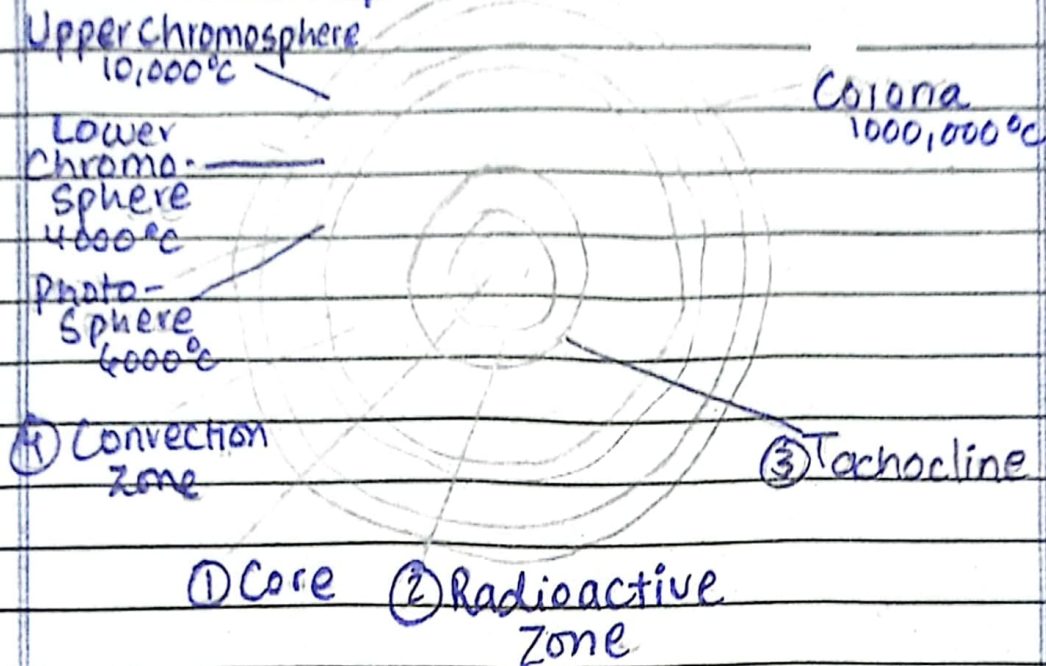 Upper Chromosphere
10,000°C
Corona
1000,000°C
Lower
Chromo-
sphere
4000°C
Photo-
Sphere
6000°C
④ Convection
Zone
③ Tachocline
① Core
② Radioactive
Zone